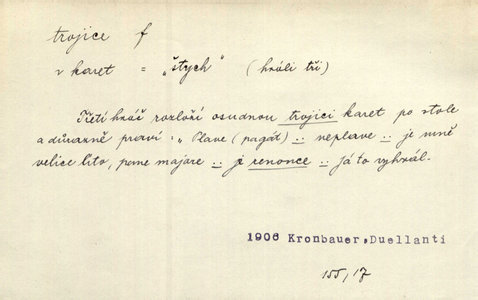 trojice f
v karet = „štych" (hráli tři)
Třetí hráč rozloží osudnou trojici karet po stole
a důrazně praví: „Plave (pagát) .. neplave .. je mně
velice líto, pane majore .. je renonce .. já to vyhrál.
1906 Kronbauer, Duellanti
155/17